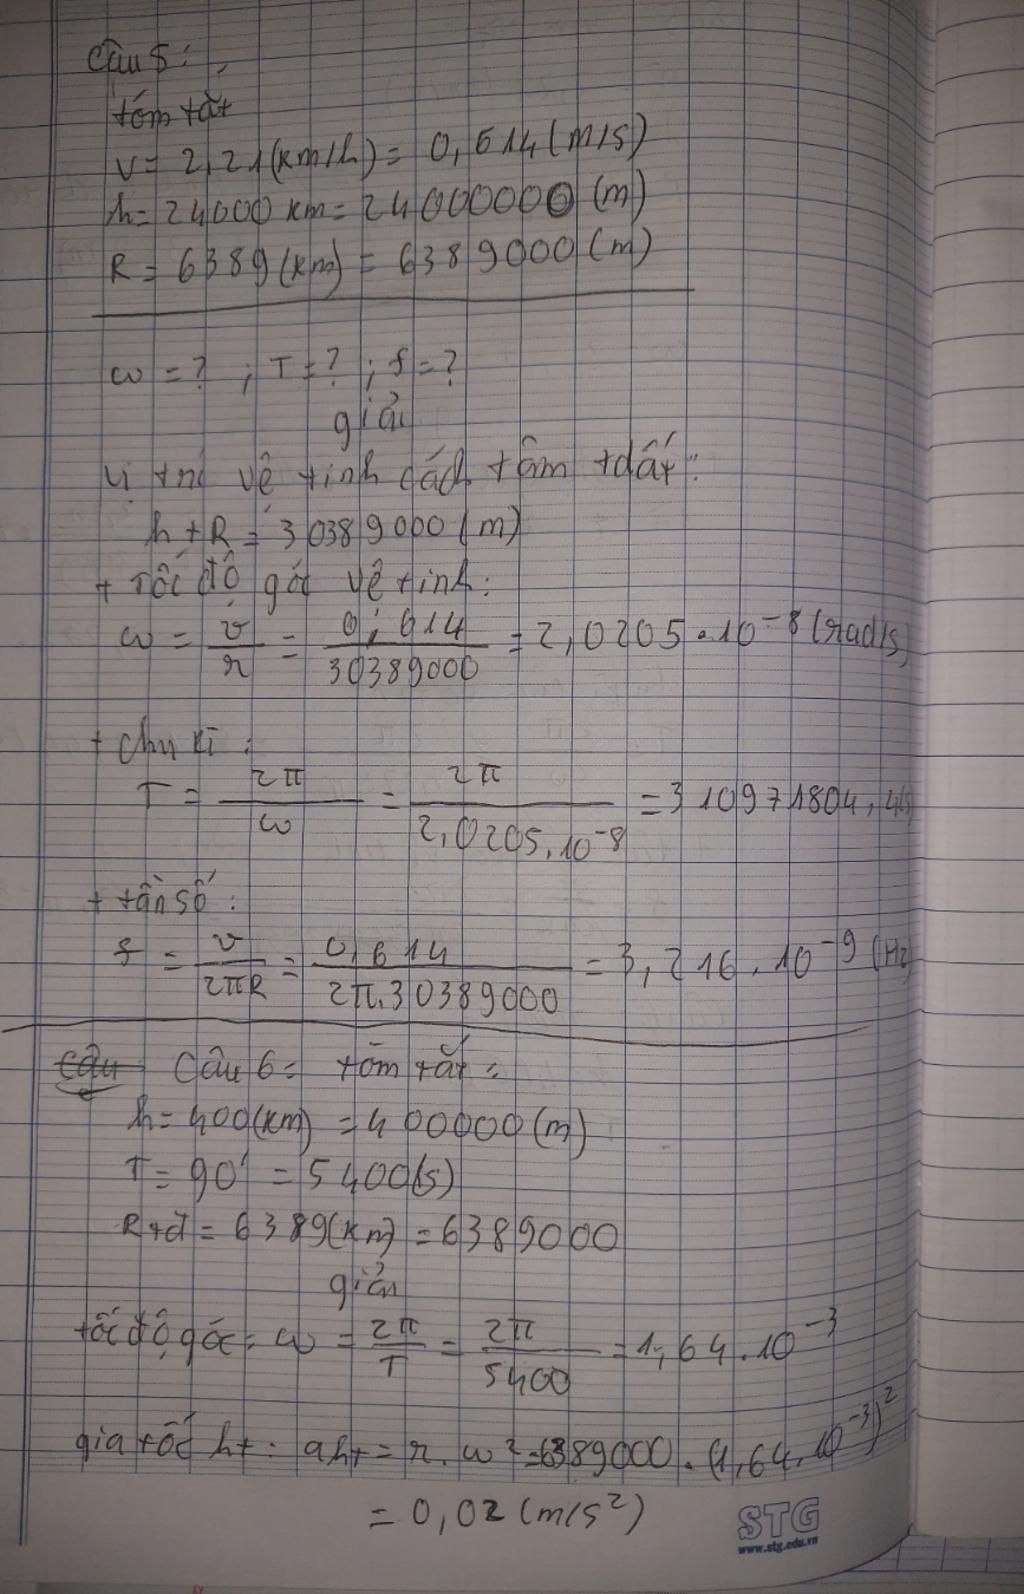 Câu 5:
tóm tắt
v = 2,21(km/h) = 0,614(m/s)
h = 24000 km = 24000000 (m)
R = 6389(km) = 6389000(m)
ω = ? ; T = ? ; f = ?
giải
Vị trí vệ tinh cách tâm tđất:
h + R = 30389000(m)
+ Tốc độ góc vệ tinh:
ω = v/r = 0,614/30389000 = 2,0205.10⁻⁸(rad/s)
+ chu kì:
T = 2π/ω = 2π/2,0205.10⁻⁸ = 310971804,4(s)
+ tần số:
f = v/2πR = 0,614/2π.30389000 = 3,216.10⁻⁹(Hz)
Câu Câu 6: tóm tắt:
h = 400(km) = 400000(m)
T = 90' = 5400(s)
R+đ = 6389(km) = 6389000
giải
tốc độ góc: ω = 2π/T = 2π/5400 = 1,64.10⁻³
gia tốc ht: aht = r.ω² = 6389000.(1,64.10⁻³)²
= 0,02(m/s²)
STG
www.stg.edu.vn